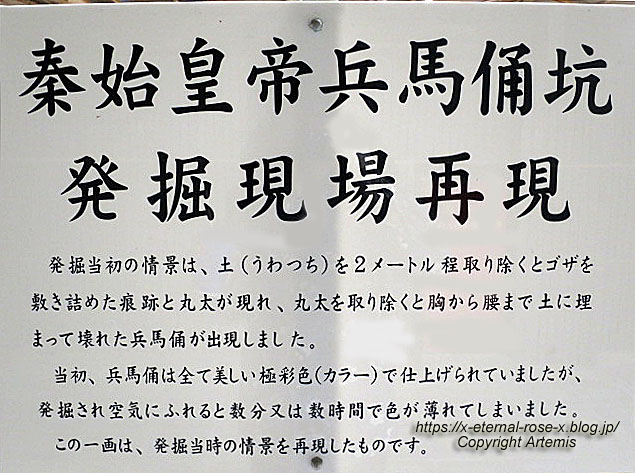 秦始皇帝兵馬俑坑
発掘現場再現
発掘当初の情景は、土(うわつち)を2メートル程取り除くとゴザを
敷き詰めた痕跡と丸太が現れ、丸太を取り除くと胸から腰まで土に埋
まって壊れた兵馬俑が出現しました。
当初、兵馬俑は全て美しい極彩色(カラー)で仕上げられていましたが、
発掘され空気にふれると数分又は数時間で色が薄れてしまいました。
この一画は、発掘当時の情景を再現したものです。
https://x-eternal-rose-x.blog.jp/
Copyright Artemis